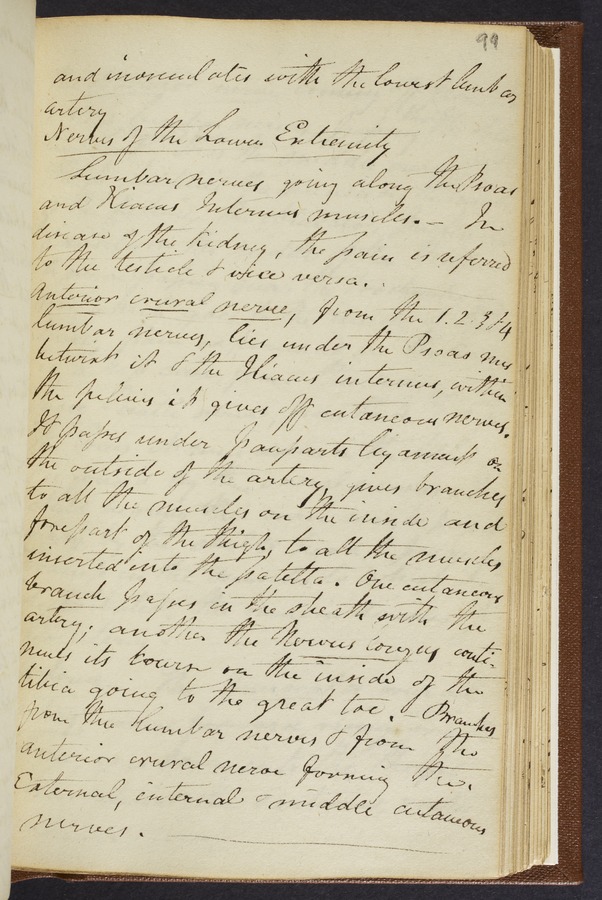 99
and inosculates with the lowest lumbar
artery
Nerves of the Lower Extremity
Lumbar nerves going along the Psoas
and Iliacus Internus muscles. — In
disease of the Kidney, the pain is referred
to the testicle & vice versa.
Anterior crural nerve, from the 1. 2. 3 & 4
lumbar nerves, lies under the Psoas mus
betwixt it & the Iliacus internus, within
the pelvis it gives off cutaneous nerves.
It passes under Pauparts ligament on
the outside of the artery, gives branches
to all the muscles on the inside and
forepart of the thigh, to all the muscles
inserted into the patella. One cutaneous
branch passes in the sheath with the
artery; another the Nervus longus conti-
nues its course on the inside of the
tibia going to the great toe. — Branches
from the lumbar nerves & from the
anterior crural nerve forming the
External, internal & middle cutaneous
nerves.